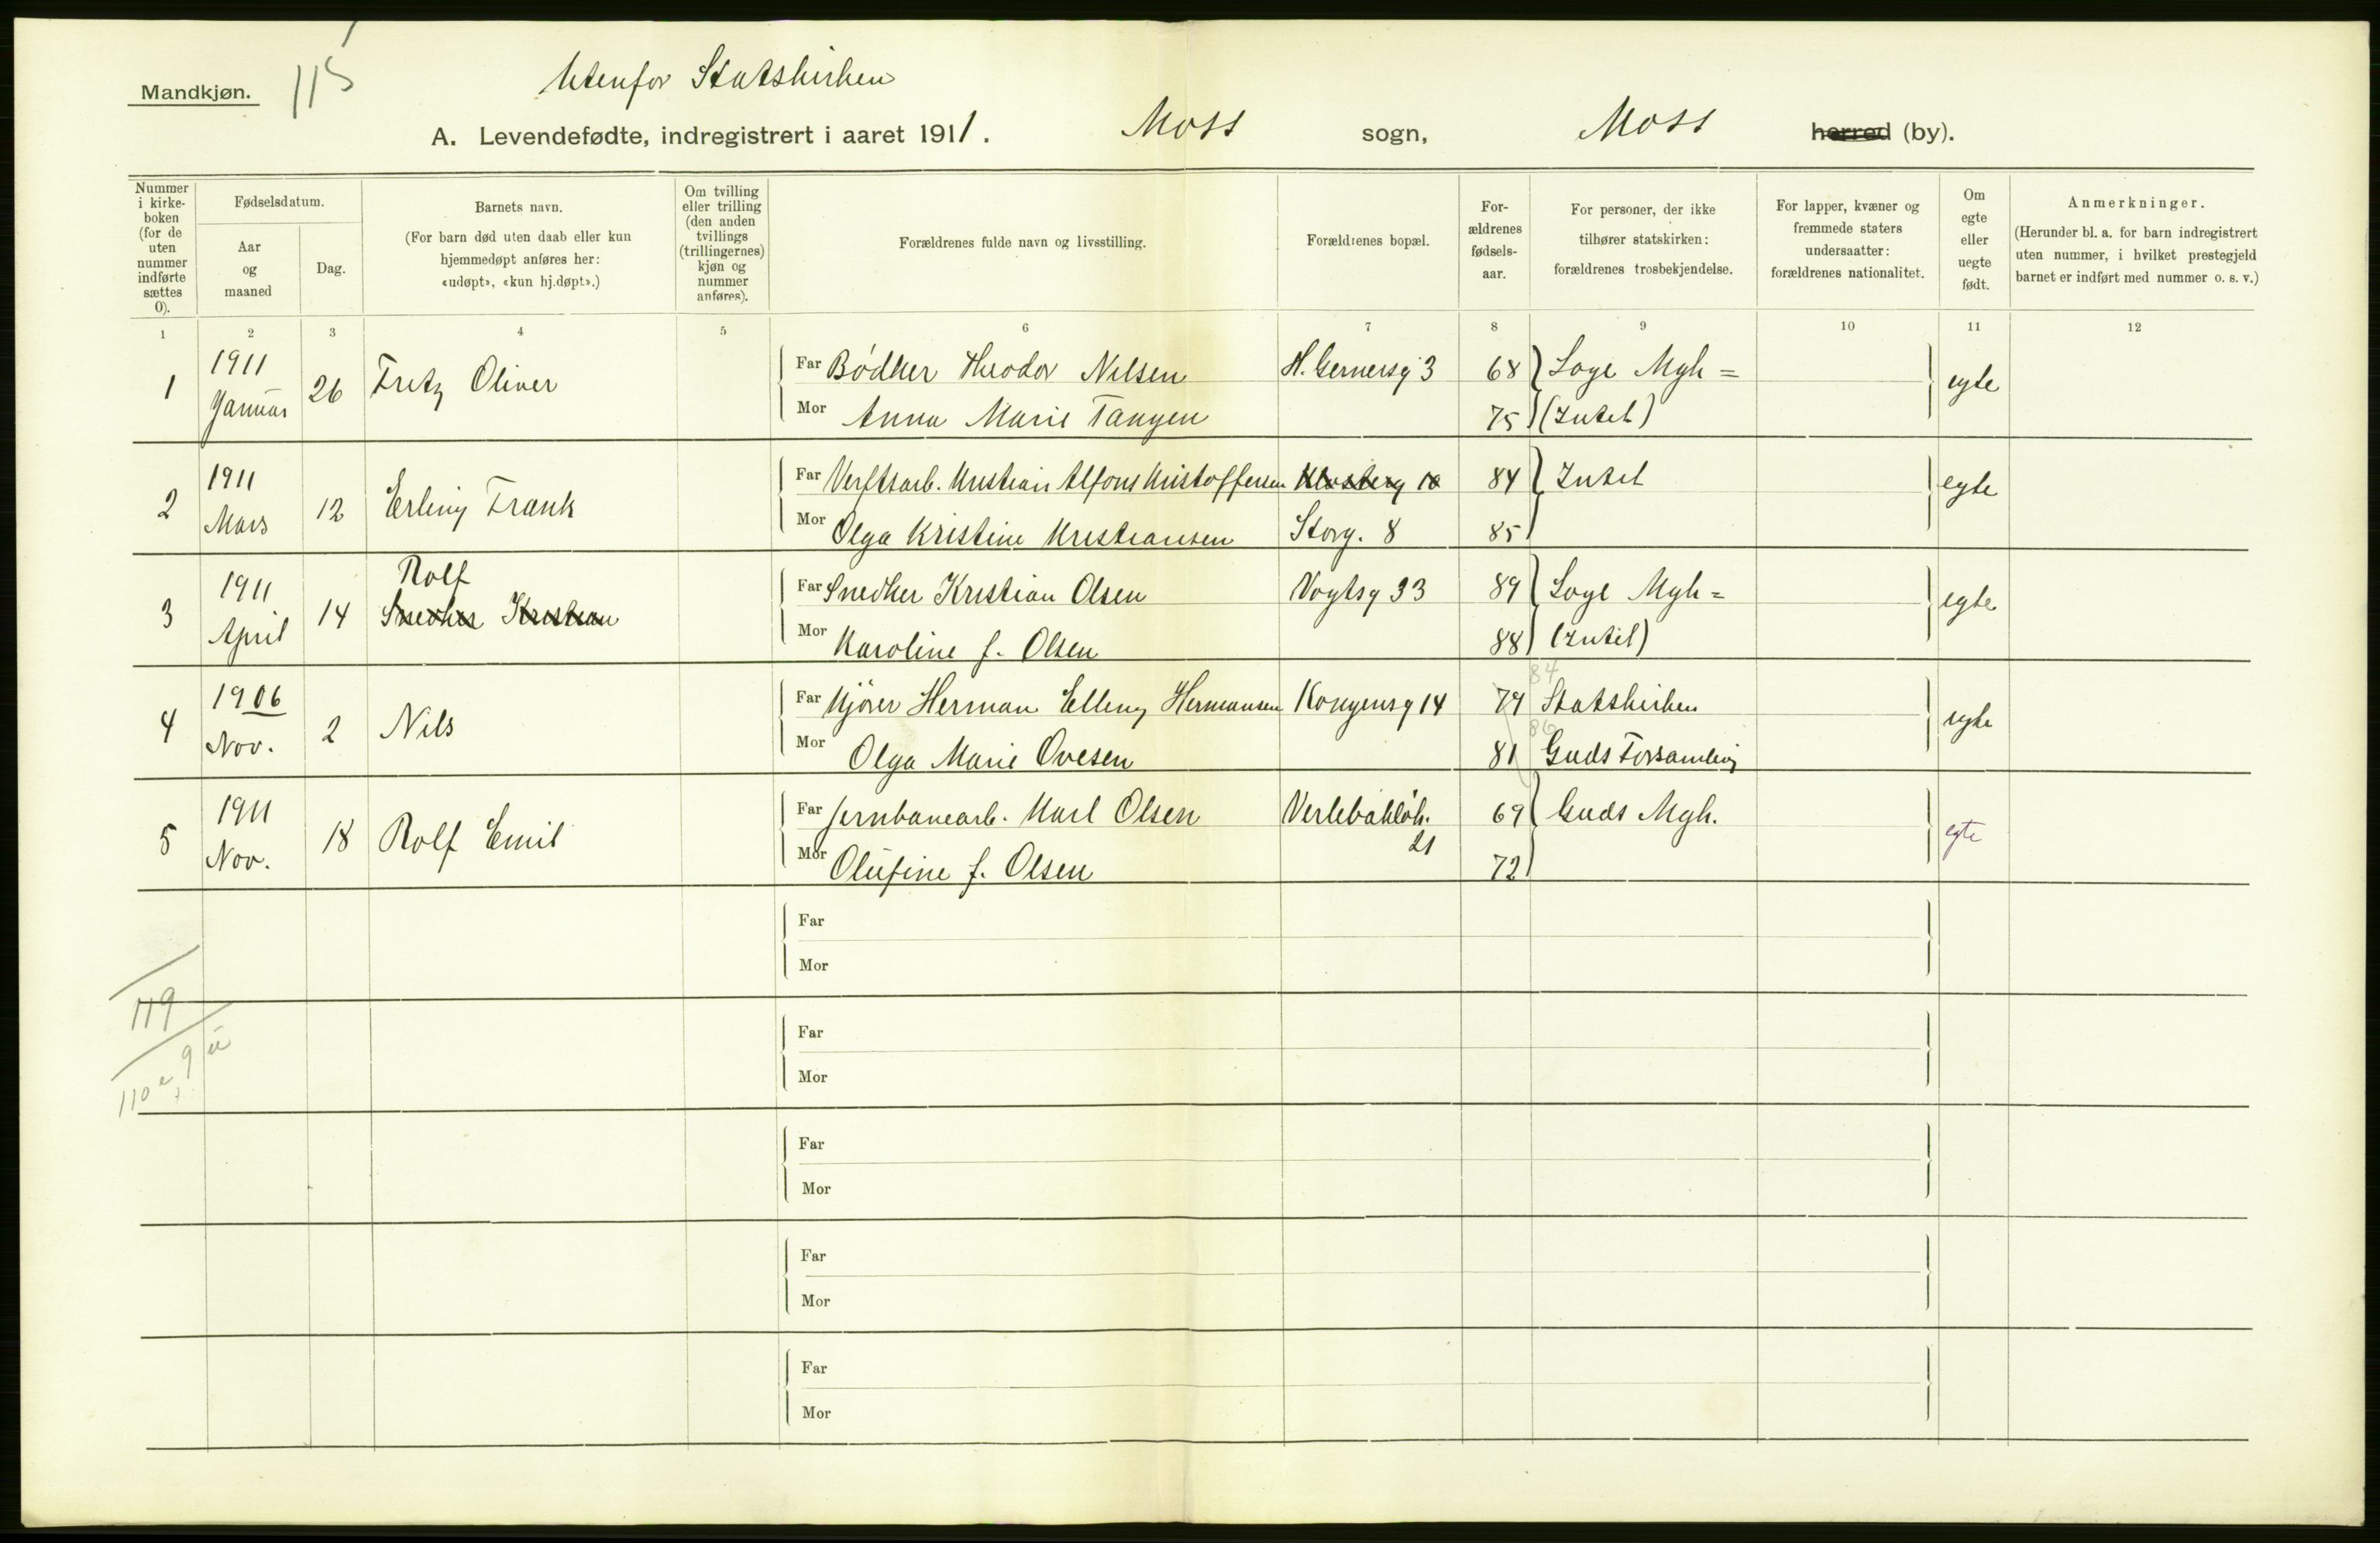 Mandkjøn.
115
Utenfor Statskirken
A. Levendefødte, indregistrert i aaret 1911. Moss sogn, Moss herred (by).
Nummer i kirke-boken (for de uten nummer indførte sættes 0).
Fødselsdatum.
Aar og maaned
Dag.
Barnets navn.
(For barn død uten daab eller kun hjemmedøpt anføres her: «udøpt», «kun hj.døpt».)
Om tvilling eller trilling (den anden tvillings (trillingernes) kjøn og nummer anføres).
Forældrenes fulde navn og livsstilling.
Forældrenes bopæl.
For-ældrenes fødsels-aar.
For personer, der ikke tilhører statskirken: forældrenes trosbekjendelse.
For lapper, kvæner og fremmede staters undersaatter: forældrenes nationalitet.
Om egte eller uegte født.
Anmerkninger.
(Herunder bl. a. for barn indregistrert uten nummer, i hvilket prestegjeld barnet er indført med nummer o. s. v.)
1 2 3 4 5 6 7 8 9 10 11 12
1 1911 Januar 26 Fritz Oliver
Far Bødker Theodor Nilsen H. Gernersg 3 68 Loge Mgh = egte
Mor Anna Marie Tangen 75 (Intet)
2 1911 Mars 12 Erling Frank
Far Verftsarb. Kristian Alfons Kristoffersen Klosterg 10 84 Intet egte
Mor Olga Kristine Kristiansen Storg. 8 85
3 1911 April 14 Rolf
Snedker Kristian
Far Snedker Kristian Olsen Vogtsg 33 89 Loge Mgh = egte
Mor Karoline f. Olsen 88 (Intet)
4 1906 Nov. 2 Nils
Far Kjører Herman Elling Hermansen Kongensg 14 79 84 Statskirken egte
Mor Olga Marie Ovesen 81 86 Guds Forsamling
5 1911 Nov. 18 Rolf Emil
Far Jernbanearb. Karl Olsen 69 Guds Mgh. egte
21
Mor Olufine f. Olsen 72
Far
Mor
119
Far
9 u
Mor
110 e,
Far
Mor
Far
Mor
Far
Mor